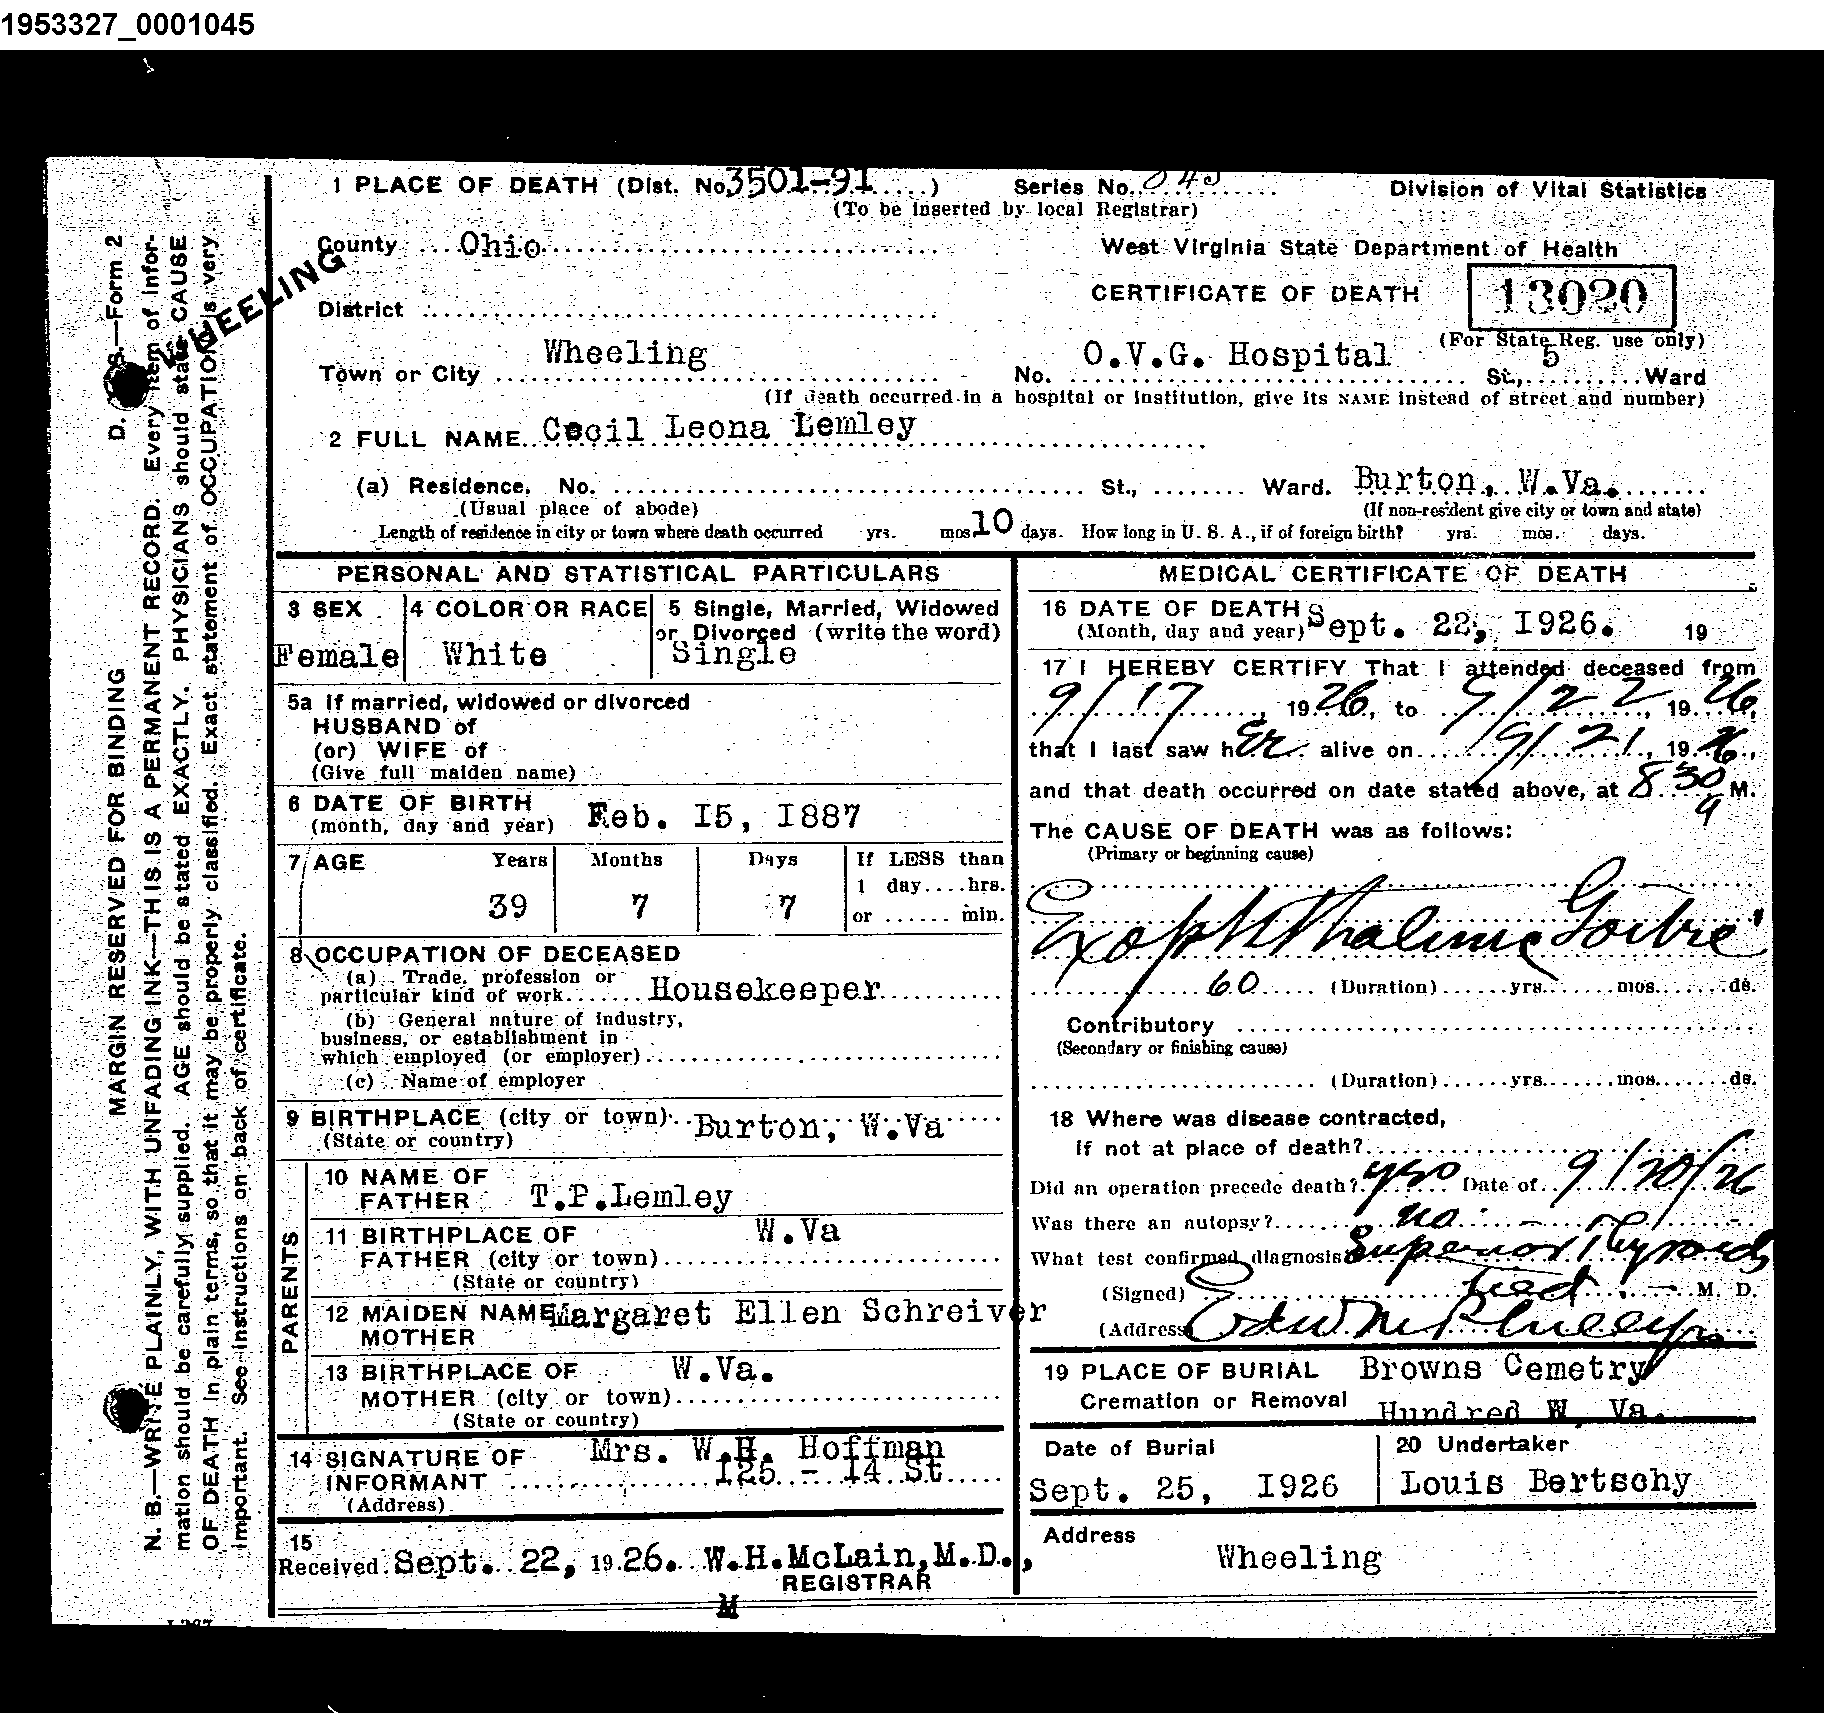 1953327_0001045
1 PLACE OF DEATH (Dist. No. 3501-91 ) Series No. Division of Vital Statistics
(To be inserted by local Registrar)
County Ohio West Virginia State Department of Health
WHEELING
CERTIFICATE OF DEATH 13020
District
(For State Reg. use only)
Town or City Wheeling No. O.V.G. Hospital St., 5 Ward
(If death occurred in a hospital or institution, give its NAME instead of street and number)
2 FULL NAME Cecil Leona Lemley
(a) Residence. No. St., Ward. Burton, W.Va.
(Usual place of abode) (If non-resident give city or town and state)
Length of residence in city or town where death occurred yrs. mos. 10 days. How long in U. S. A., if of foreign birth? yrs. mos. days.
PERSONAL AND STATISTICAL PARTICULARS
3 SEX 4 COLOR OR RACE 5 Single, Married, Widowed
or Divorced (write the word)
Female White Single
5a If married, widowed or divorced
HUSBAND of
(or) WIFE of
(Give full maiden name)
6 DATE OF BIRTH
(month, day and year) Feb. I5, I887
7 AGE Years Months Days If LESS than
1 day....hrs.
39 7 7 or ...... min.
8 OCCUPATION OF DECEASED
(a) Trade, profession or
particular kind of work Housekeeper
(b) General nature of industry,
business, or establishment in
which employed (or employer)
(c) Name of employer
9 BIRTHPLACE (city or town) Burton, W.Va
(State or country)
PARENTS
10 NAME OF
FATHER T.P.Lemley
11 BIRTHPLACE OF W.Va
FATHER (city or town)
(State or country)
12 MAIDEN NAME Margaret Ellen Schreiver
MOTHER
13 BIRTHPLACE OF W.Va.
MOTHER (city or town)
(State or country)
14 SIGNATURE OF Mrs. W.H. Hoffman
INFORMANT I25 - I4 St
(Address)
15
Received Sept. 22, 1926. W.H.McLain,M.D.,
REGISTRAR
M
MEDICAL CERTIFICATE OF DEATH
16 DATE OF DEATH
(Month, day and year) Sept. 22, I926. 19
17 I HEREBY CERTIFY That I attended deceased from
9/17, 1926, to 9/22, 1926,
that I last saw hEr alive on 9/21, 1926,
and that death occurred on date stated above, at 8.30 M.
The CAUSE OF DEATH was as follows:
(Primary or beginning cause)
Exophthalmic Goitre
60 (Duration) yrs. mos. ds.
Contributory
(Secondary or finishing cause)
(Duration) yrs. mos. ds.
18 Where was disease contracted,
if not at place of death?
Did an operation precede death? yes Date of 9/20/26
Was there an autopsy? no
What test confirmed diagnosis Superior Thyroids
tied
(Signed) M. D.
(Address)
19 PLACE OF BURIAL Browns Cemetry
Cremation or Removal Hundred W. Va.
Date of Burial 20 Undertaker
Sept. 25, I926 Louis Bertschy
Address
Wheeling
MARGIN RESERVED FOR BINDING
N. B.—WRITE PLAINLY, WITH UNFADING INK—THIS IS A PERMANENT RECORD. Every item of infor-
mation should be carefully supplied. AGE should be stated EXACTLY. PHYSICIANS should state CAUSE
OF DEATH in plain terms, so that it may be properly classified. Exact statement of OCCUPATION is very
important. See instructions on back of certificate.